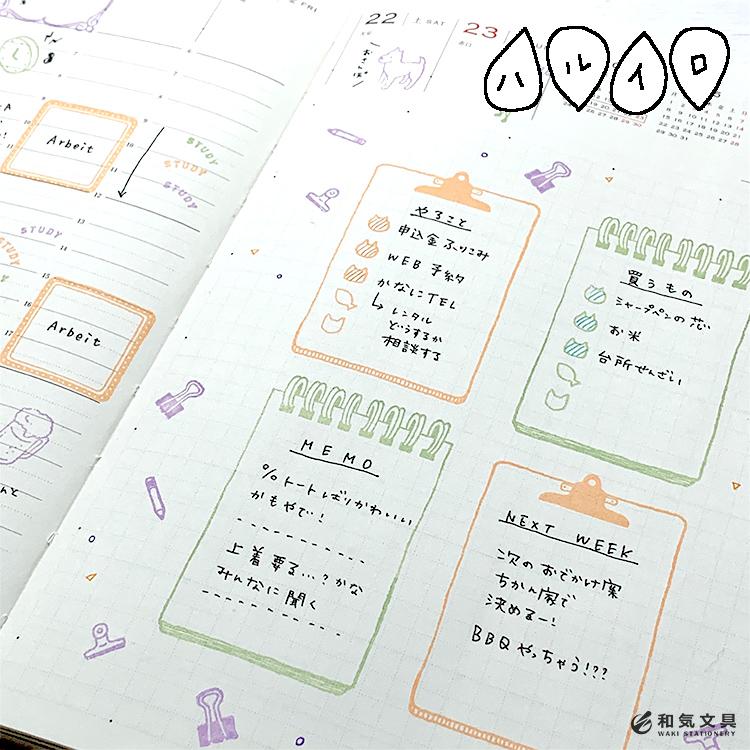 FRI
22 土 SAT
23
ハルイロ
Arbeit
STUDY
STUDY
STUDY
STUDY
STUDY
Arbeit
やること
申込金ふりこみ
WEB予約
かなにTEL
↳レンタル
どうするか
相談する
買うもの
シャープペンの芯
お米
台所せんざい
MEMO
%トートばりかわいい
かもやで!
上着要る…?かな
みんなに聞く
NEXT WEEK
次のおでかけ案
ちかん家で
決めるー!
BBQやっちゃう!??
和気文具
WAKI STATIONERY